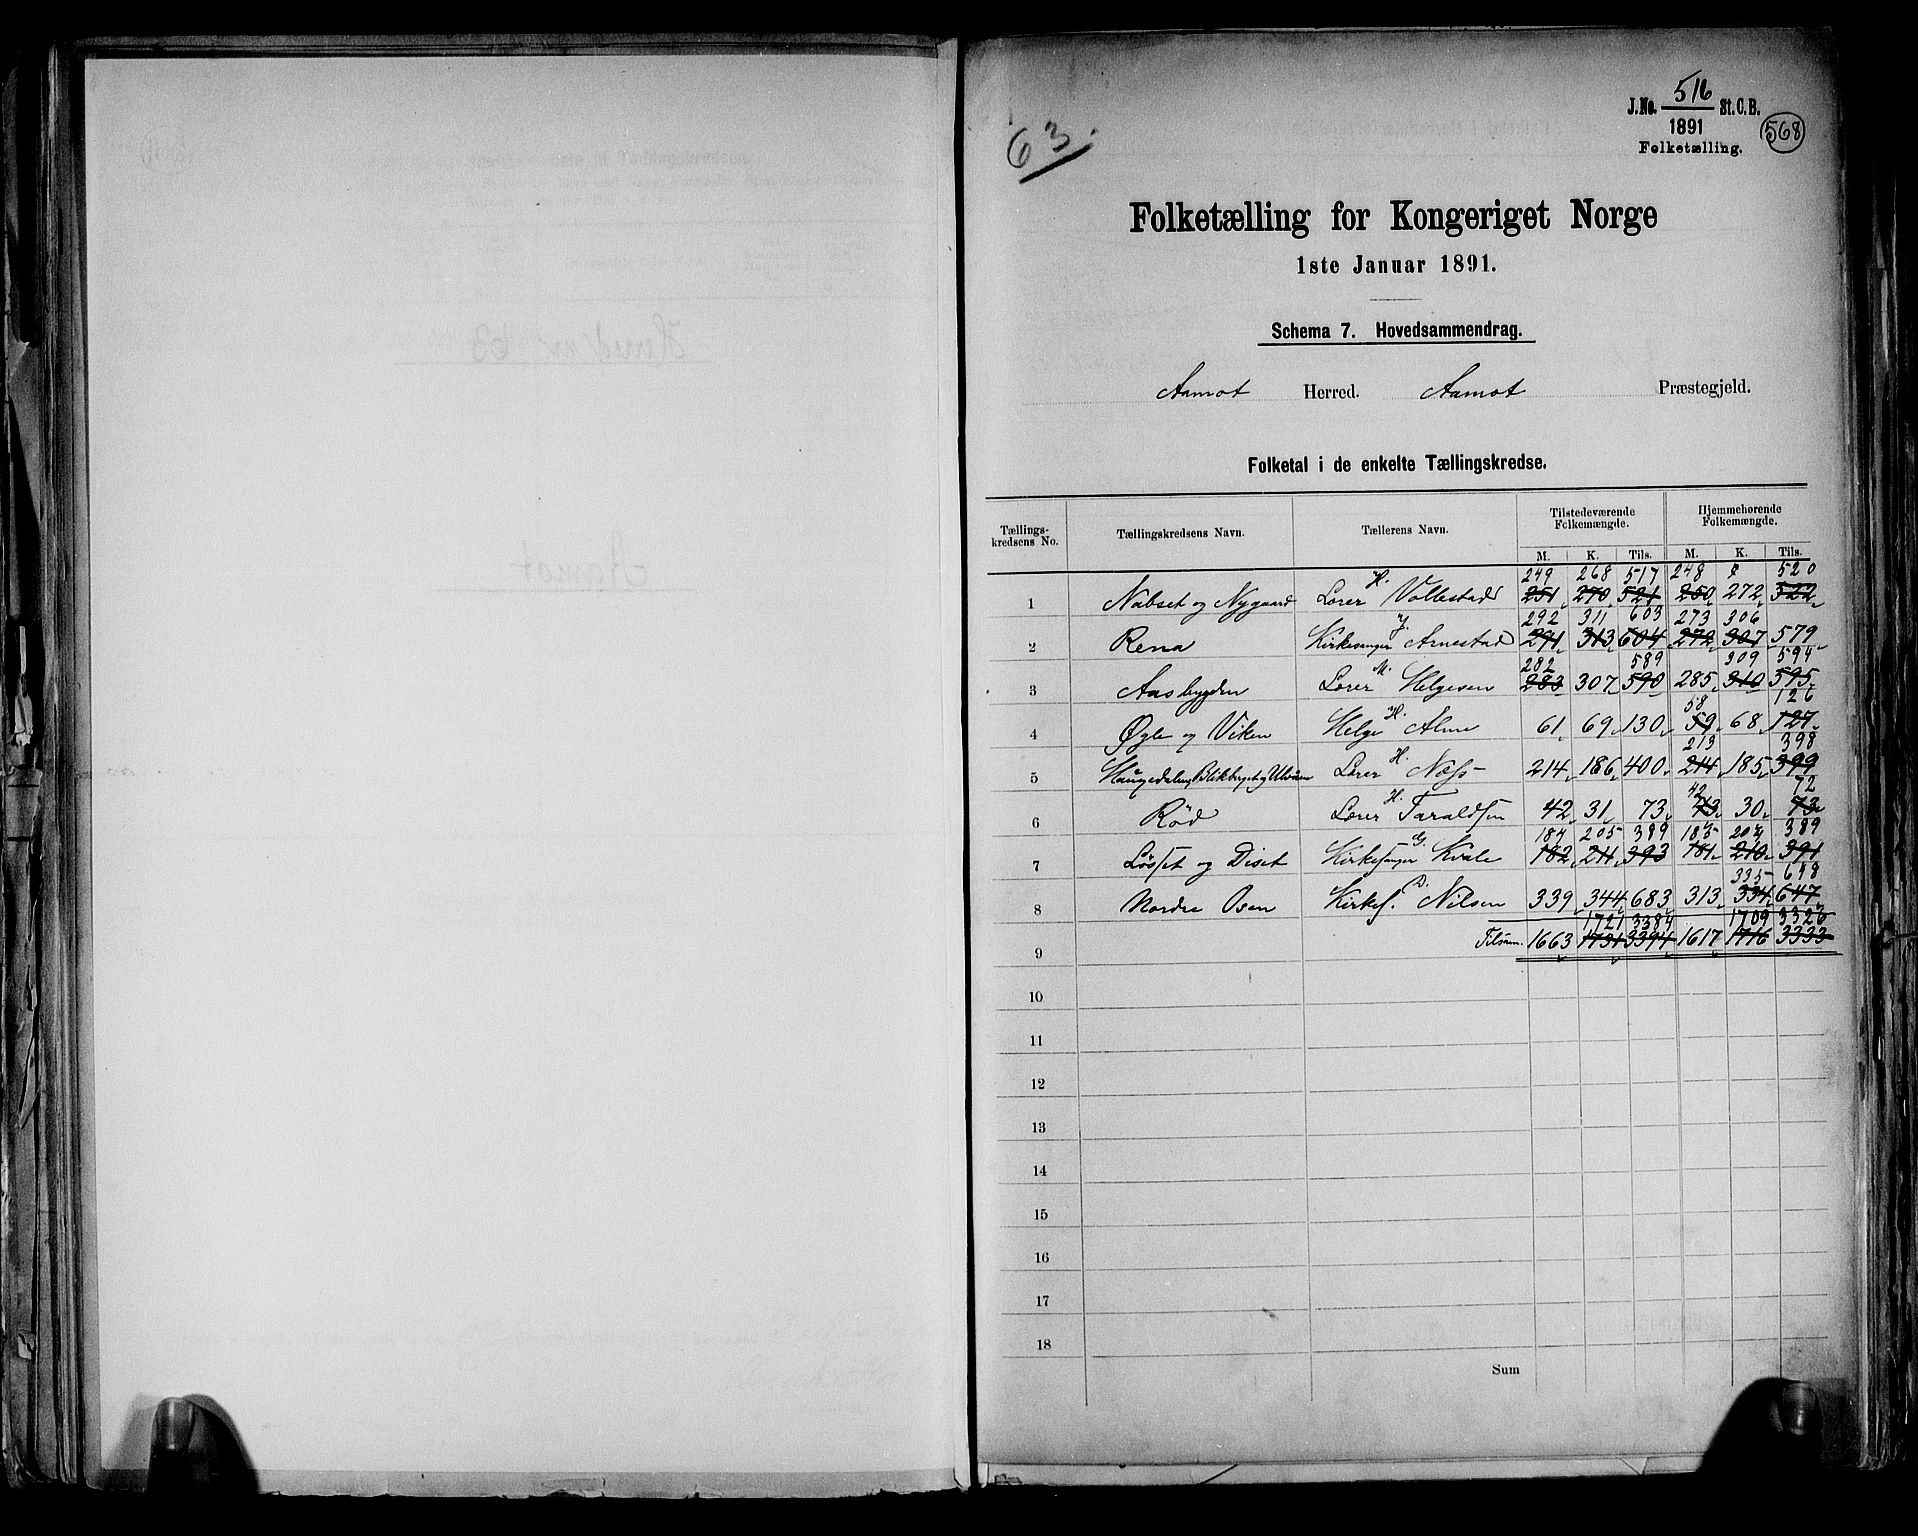 63.
J.No. 516 St.C.B.
1891
Folketælling.
568
Folketælling for Kongeriget Norge
1ste Januar 1891.
Schema 7. Hovedsammendrag.
Aamot Herred. Aamot Præstegjeld.
Folketal i de enkelte Tællingskredse.
Tællings-kredsens No. Tællingskredsens Navn. Tællerens Navn. Tilstedeværende Folkemængde. Hjemmehørende Folkemængde.
M. K. Tils. M. K. Tils.
249 268 517 248 520
1 Nabset og Nygaard Lærer H. Vollestad 251 270 521 250 272 522
292 311 603 273 306
2 Rena Kirkesanger J. Arnestad 291 313 604 272 307 579
282 589 309 594
3 Aasbygden Lærer M. Helgesen 283 307 590 285 310 595
58 126
4 Øgle og Viken Helge H. Alme 61 69 130 59 68 127
213 398
5 Haugedalen, Blikberget og Ulvåen Lærer H. Næss 214 186 400 214 185 399
42 72
6 Rød Lærer H. Taraldsen 42 31 73 43 30 73
184 205 389 185 204 389
7 Løsset og Diset Kirkesanger G. Kvale 182 211 393 181 210 391
335 648
8 Nordre Osen Kirkes. P. Nilsen 339 344 683 313 334 647
1721 3384 1709 3326
9 Tilsam. 1663 1731 3394 1617 1716 3333
10
11
12
13
14
15
16
17
18
Sum